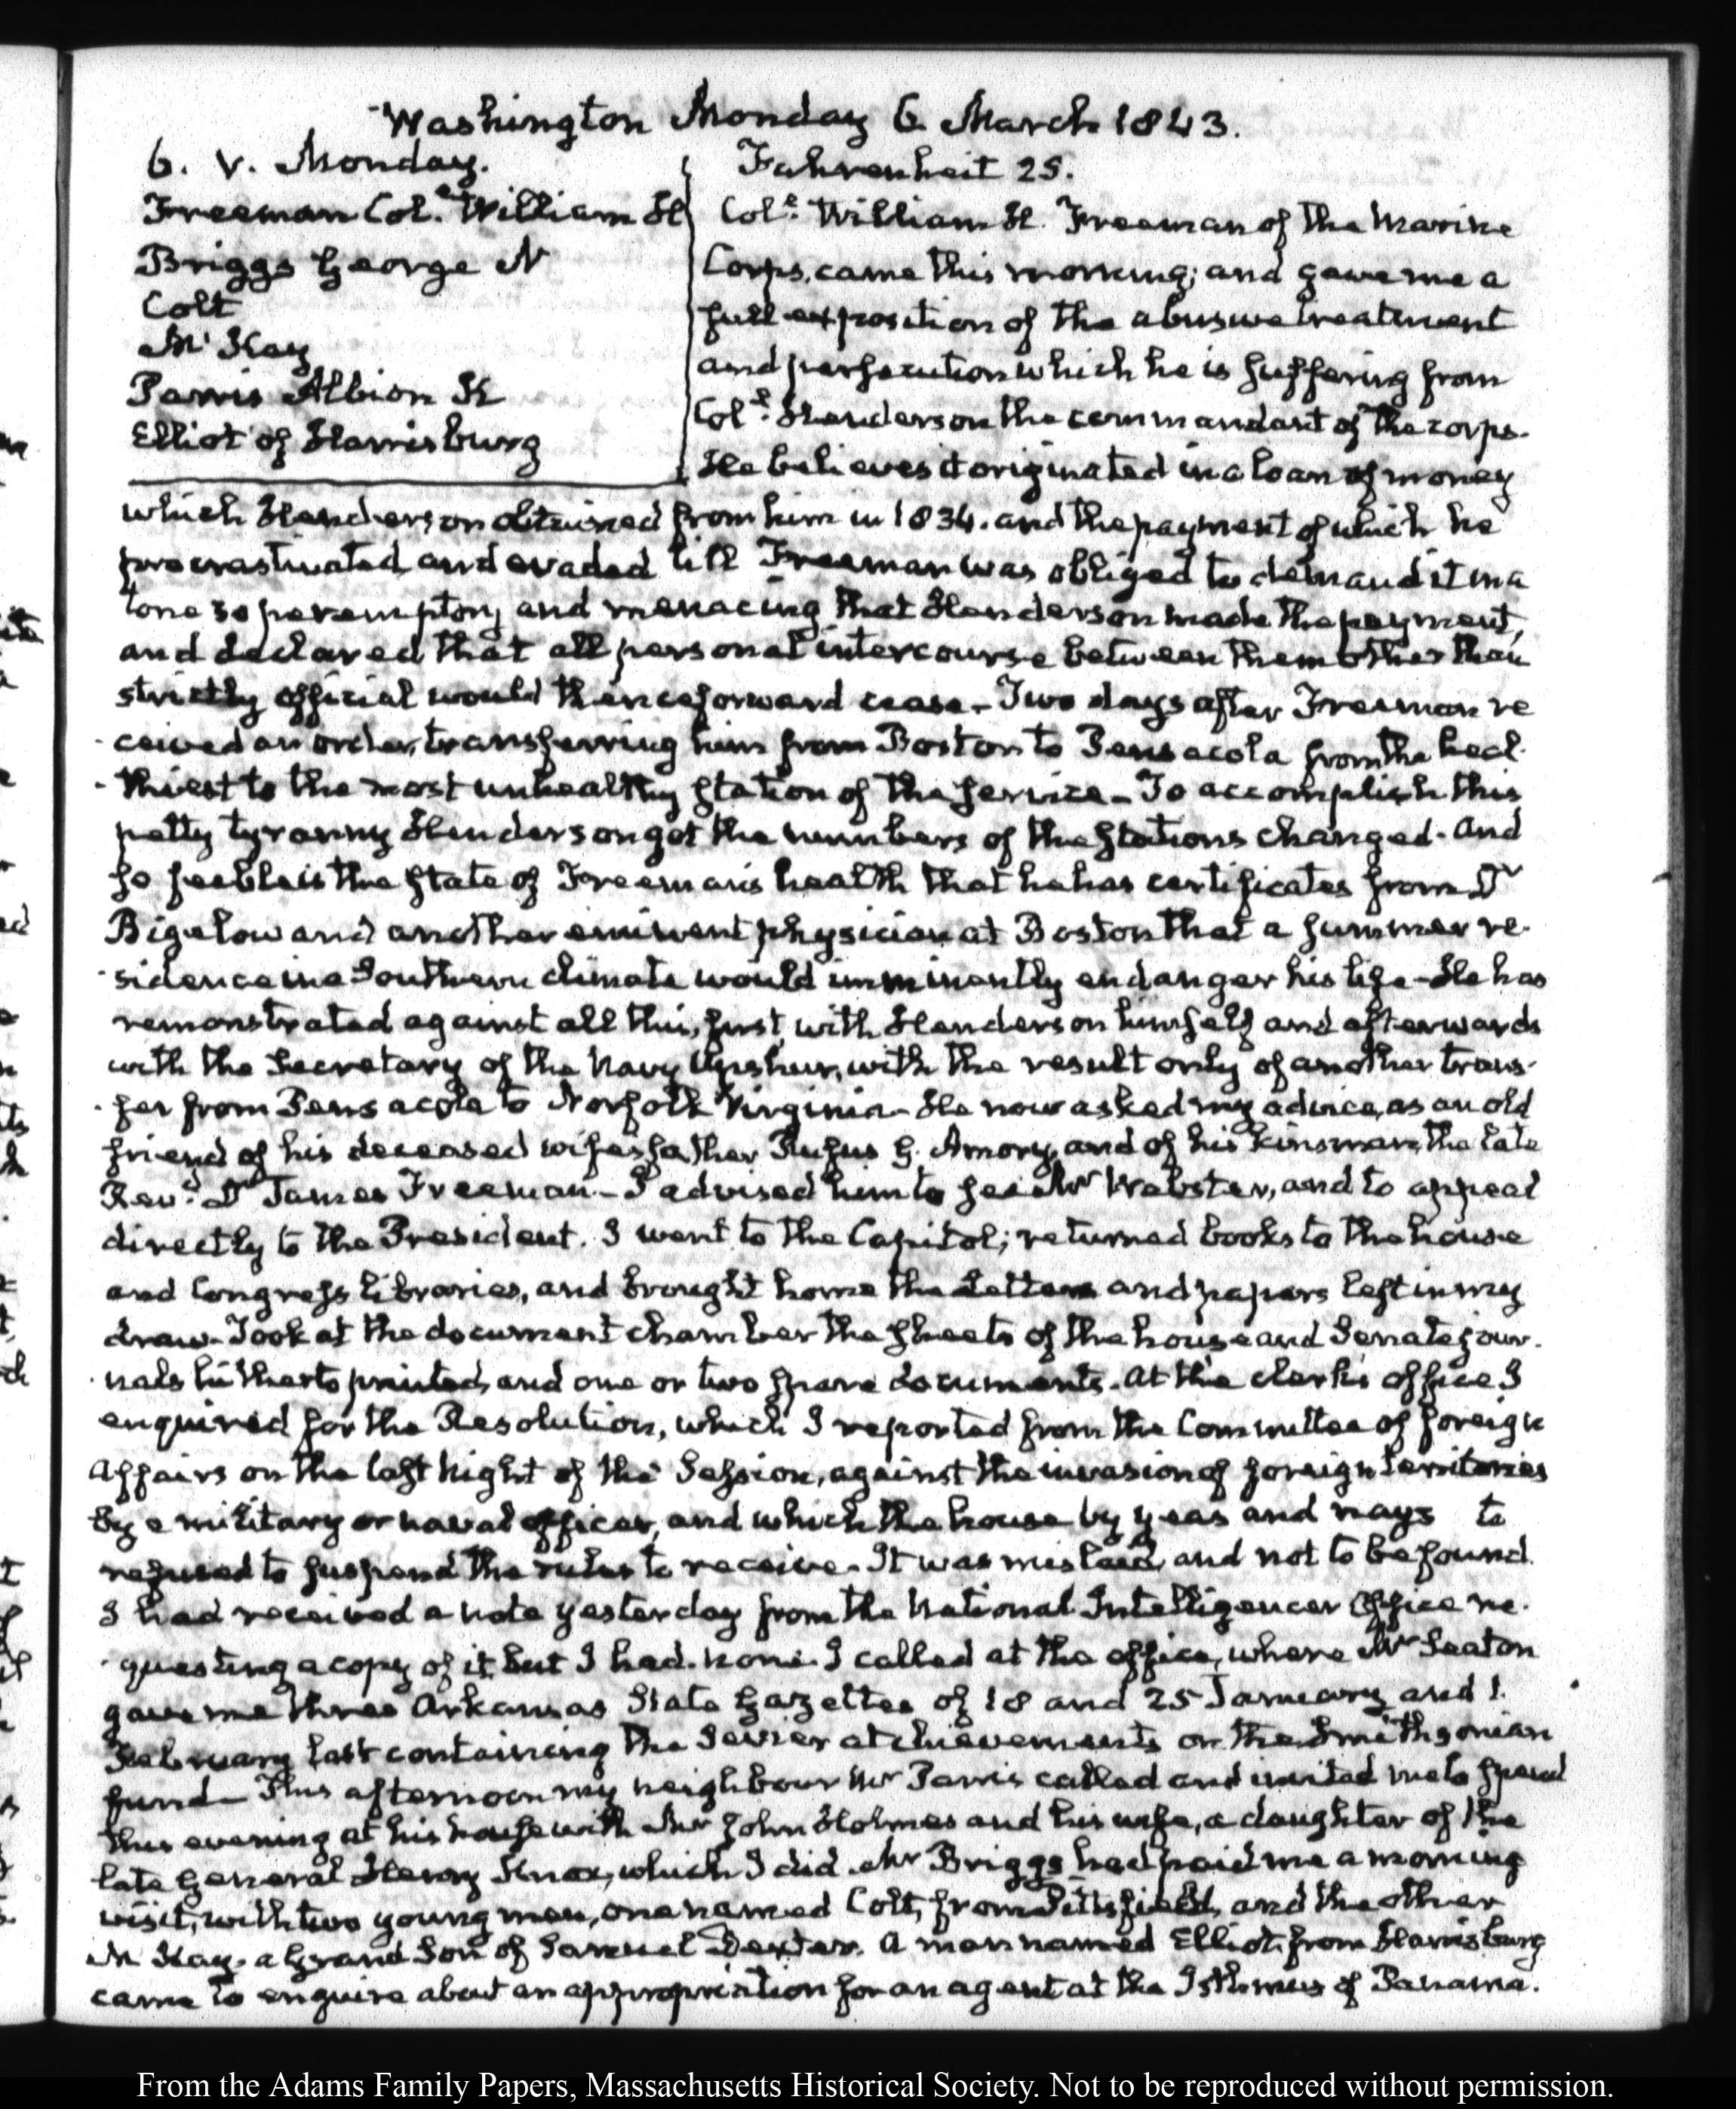 Washington Monday 6. March 1843.
6. V. Monday.
Freeman Col.^l William H
Briggs George N
Colt
M^c Kay
Parris Albion K
Elliot of Harrisburg
Fahrenheit 25.
Col^l. William H. Freeman of the Marine
Corps, came this morning; and gave me a
full exposition of the abusive treatment
and persecution which he is suffering from
Col^l. Henderson the commandant of the corps.
He believes it originated in a loan of money
which Henderson obtained from him in 1834. and the payment of which he
procrastinated and evaded till Freeman was obliged to demand it in a
tone so peremptory and menacing that Henderson made the payment,
and declared that all personal intercourse between them other than
strictly official would thenceforward cease. Two days after Freeman re
-ceived an order, transferring him from Boston to Pensacola from the heal-
-thiest to the most unhealthy station of the service. To accomplish this
petty tyranny Henderson got the numbers of the stations changed. And
so feeble is the state of Freeman's health that he has certificates from D^r
Bigelow and another eminent physician at Boston that a summer re-
-sidence in a Southern climate would imminently endanger his life. He has
remonstrated against all this, first, with Henderson himself and afterwards
with the Secretary of the Navy Upshur, with the result only of another trans-
-fer from Pensacola to Norfolk Virginia. He now asked my advice, as an old
friend of his deceased wife's father Rufus G. Amory, and of his kinsman, the late
Rev.^d D^r James Freeman. I advised him to see M^r Webster, and to appeal
directly to the President. I went to the Capitol; returned books to the house
and Congress libraries, and brought home the letters and papers left in my
draw. Took at the document chamber the sheets of the house and Senate jour-
-nals hitherto printed, and one or two spare documents. At the clerk's office I
enquired for the Resolution, which I reported from the Committee of foreign
Affairs on the last night of the Session, against the invasion of foreign territories
by a military or naval officer, and which the house by yeas and nays to
refused to suspend the rules to receive. It was mislaid and not to be found.
I had received a note yesterday from the National Intelligencer Office re-
-questing a copy of it, but I had none. I called at the office, where M^r Seaton
gave me three Arkansas State Gazettes of 18 and 25 January and 1.
February last containing the Sevier atchievements on the Smithsonian
fund. This afternoon my neighbour M^r Parris called and invited me to spend
this evening at his house with M^r John Holmes and his wife, a daughter of the
late General Henry Knox, which I did. M^r Briggs had paid me a morning
visit, with two young men, one named Colt, from Pittsfield, and the other
M^c Kay. a Grand Son of Samuel Dexter. A man named Elliot from Harrisburg
came to enquire about an appropriation for an agent at the Isthmus of Panama.
From the Adams Family Papers, Massachusetts Historical Society. Not to be reproduced without permission.